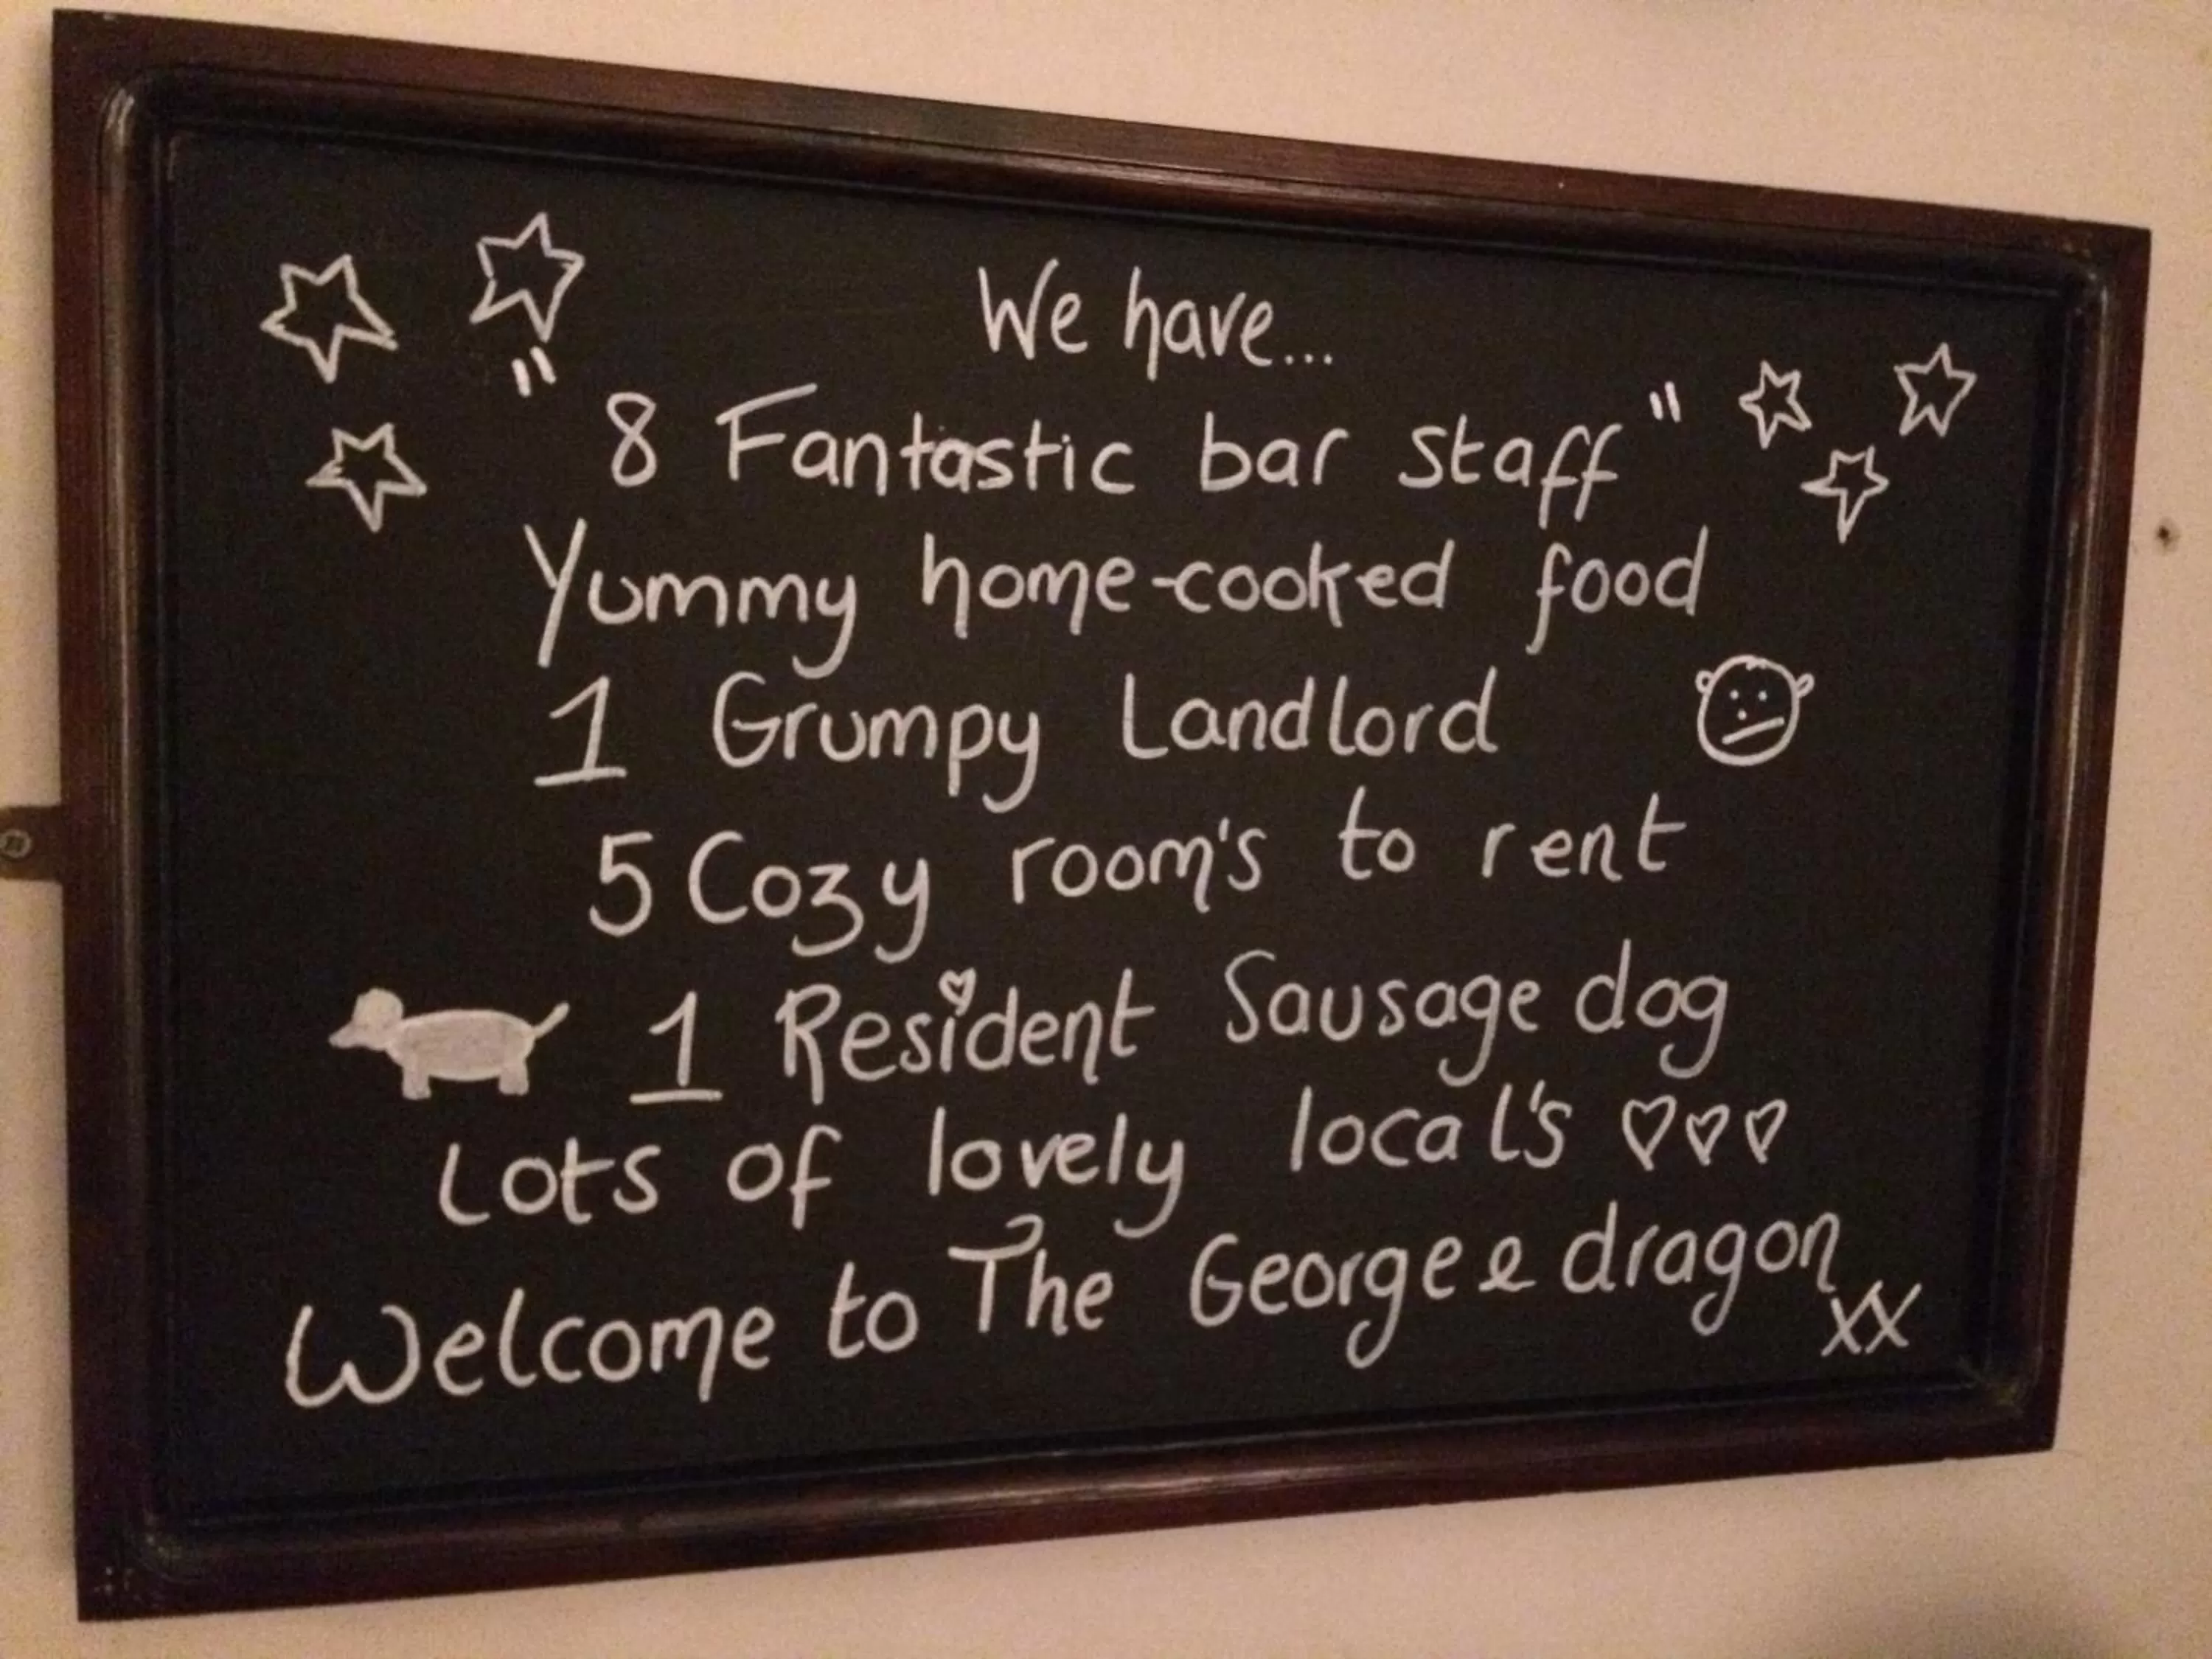 We have...
"8 Fantastic bar staff"
Yummy home-cooked food
1 Grumpy Landlord
5 Cozy room's to rent
1 Resident Sausage dog
Lots of lovely local's ♡♡♡
Welcome to The George & dragon
xx